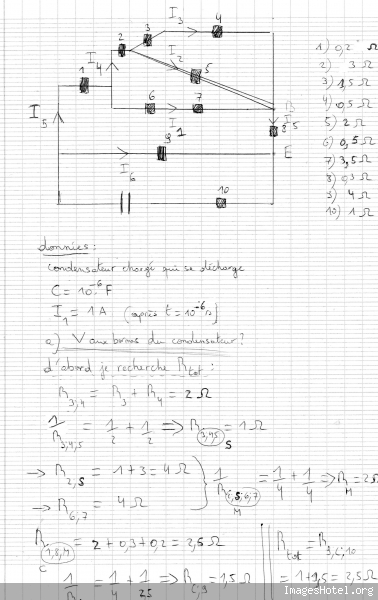 I3
4
3
2
I4
I2
5
1
6
7
I1
B
I5
8
I5
9
E
I6
10
1) 0,2 Ω
2) 3 Ω
3) 1,5 Ω
4) 0,5 Ω
5) 2 Ω
6) 0,5 Ω
7) 3,5 Ω
8) 0,3 Ω
9) 4 Ω
10) 1 Ω
données :
condensateur chargé qui se décharge
C = 10^-6 F
I1 = 1 A (après t = 10^-6 s)
a) V aux bornes du condensateur ?
d'abord je recherche Rtot :
R3,4 = R3 + R4 = 2 Ω
1/R3,4,5 = 1/2 + 1/2 => R3,4,5 = 1 Ω
S
→ R2,S = 1 + 3 = 4 Ω
→ R6,7 = 4 Ω
1/R2,S,6,7 = 1/4 + 1/4 => RM = 2 Ω
M
R1,8,M = 2 + 0,3 + 0,2 = 2,5 Ω
C
Rtot = R9,C,10
= 1 + 1,5 = 2,5 Ω
= 1/4 + 1/2,5 => RC,9 = 1,5 Ω
ImagesHotel.org